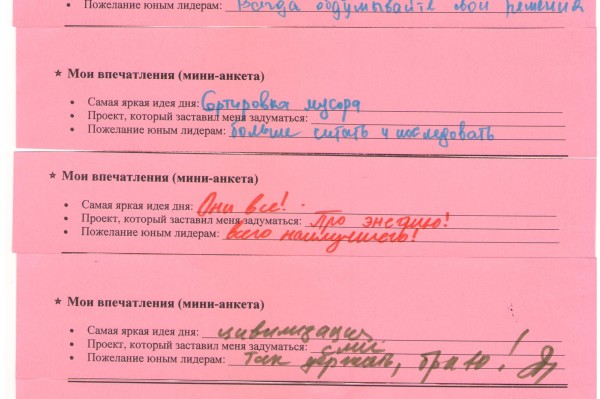 Пожелание юным лидерам: Всегда обдумывайте свои решения
★ Мои впечатления (мини-анкета)
• Самая яркая идея дня: Сортировка мусора
• Проект, который заставил меня задуматься:
• Пожелание юным лидерам: больше читать и исследовать
★ Мои впечатления (мини-анкета)
• Самая яркая идея дня: Они все!
• Проект, который заставил меня задуматься: Про энергию!
• Пожелание юным лидерам: Всего наилучшего!
★ Мои впечатления (мини-анкета)
• Самая яркая идея дня: цивилизация
• Проект, который заставил меня задуматься: СМИ
• Пожелание юным лидерам: Так держать, браво!